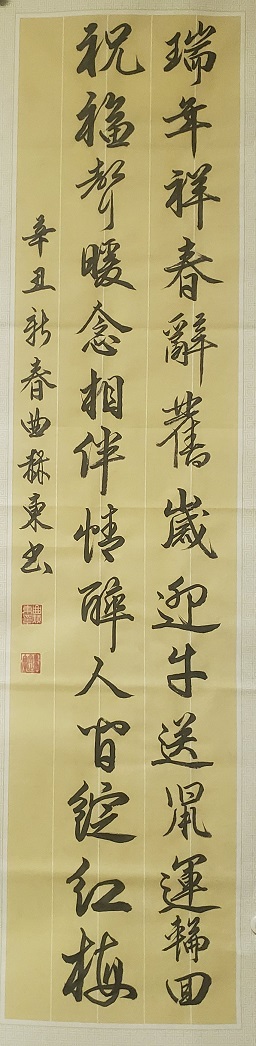 瑞年祥春辭舊歲迎牛送鼠運輪回
祝福聲暖念相伴情醉人间綻红梅
辛丑新春曲赫東书